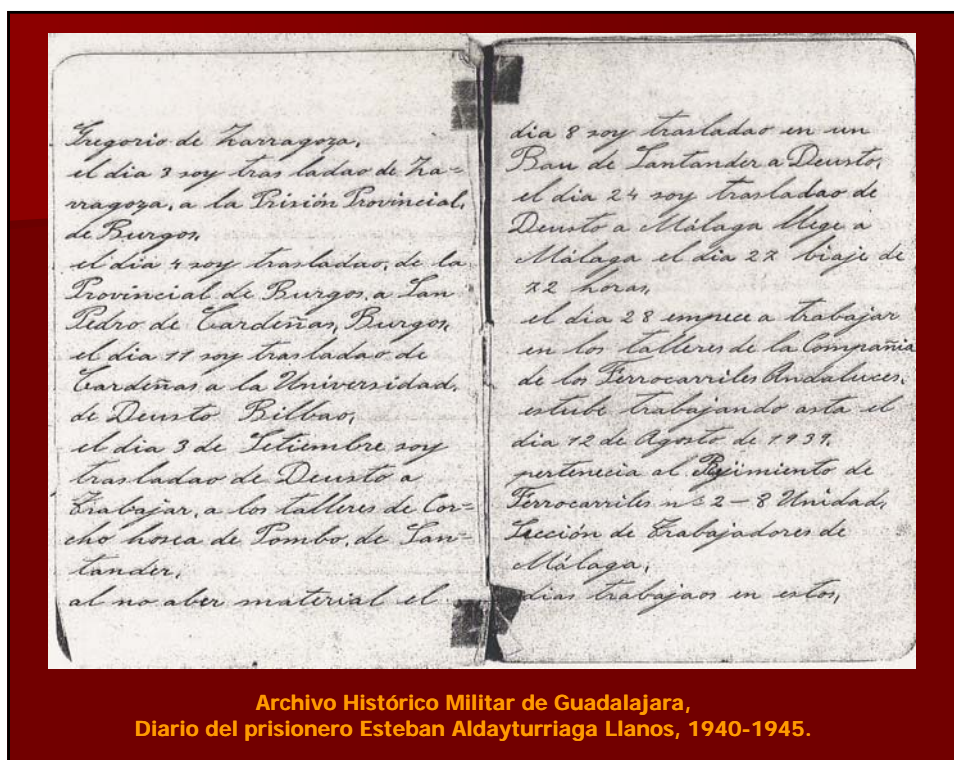 Gregorio de Zarragoza,
el dia 3 soy tras ladao de Za=
rragoza, a la Prisión Provincial,
de Burgos,
el dia 4 soy trasladao, de la
Provincial de Burgos, a San
Pedro de Cardeñas, Burgos,
el dia 11 soy trasladao de
Cardeñas a la Universidad,
de Deusto Bilbao,
el dia 3 de Setiembre soy
trasladao de Deusto a
Trabajar, a los talleres de Cor=
cho hosea de Pombo, de San=
tander,
al no aber material el
dia 8 soy trasladao en un
Bau de Santander a Deusto,
el dia 24 soy trasladao de
Deusto a Málaga llege a
Málaga el dia 27 biaje de
72 horas,
el dia 28 empece a trabajar
en los talleres de la Compañia
de los Ferrocarriles Andaluces,
estube trabajando asta el
dia 12 de Agosto de 1939,
pertenecia al Rejimiento de
Ferrocarriles nº 2 – 8 Unidad,
Sección de Trabajadores de
Málaga,
dias trabajaos en estos,
Archivo Histórico Militar de Guadalajara,
Diario del prisionero Esteban Aldayturriaga Llanos, 1940-1945.